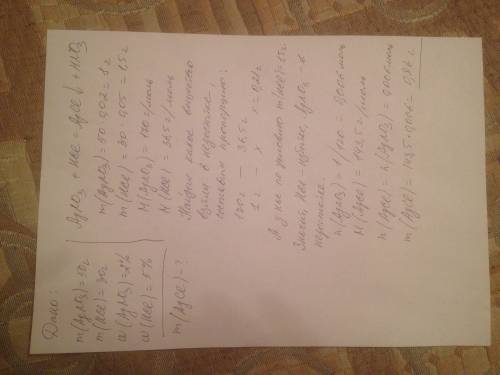 Дано:
m(AgNO3) = 50г
m(HCl) = 30г
ω(AgNO3) = 2%
ω(HCl) = 5%
m(AgCl) - ?
AgNO3 + HCl = AgCl↓ + HNO3
m(AgNO3) = 50·0.02 = 1г
m(HCl) = 30·0.05 = 1.5г
M(AgNO3) = 170 г/моль
M(HCl) = 36.5 г/моль
Находим какое вещество
взято в недостатке,
составим пропорцию:
170г — 36,5г
1г — x x = 0,21г
А у нас по условию m(HCl) = 1.5г
Значит, HCl - избыток, AgNO3 - в
недостатке.
n(AgNO3) = 1/170 = 0,006 моль
M(AgCl) = 143.5 г/моль
n(AgCl) = n(AgNO3) = 0,006 моль
m(AgCl) = 143.5·0.006 = 0,86 г.